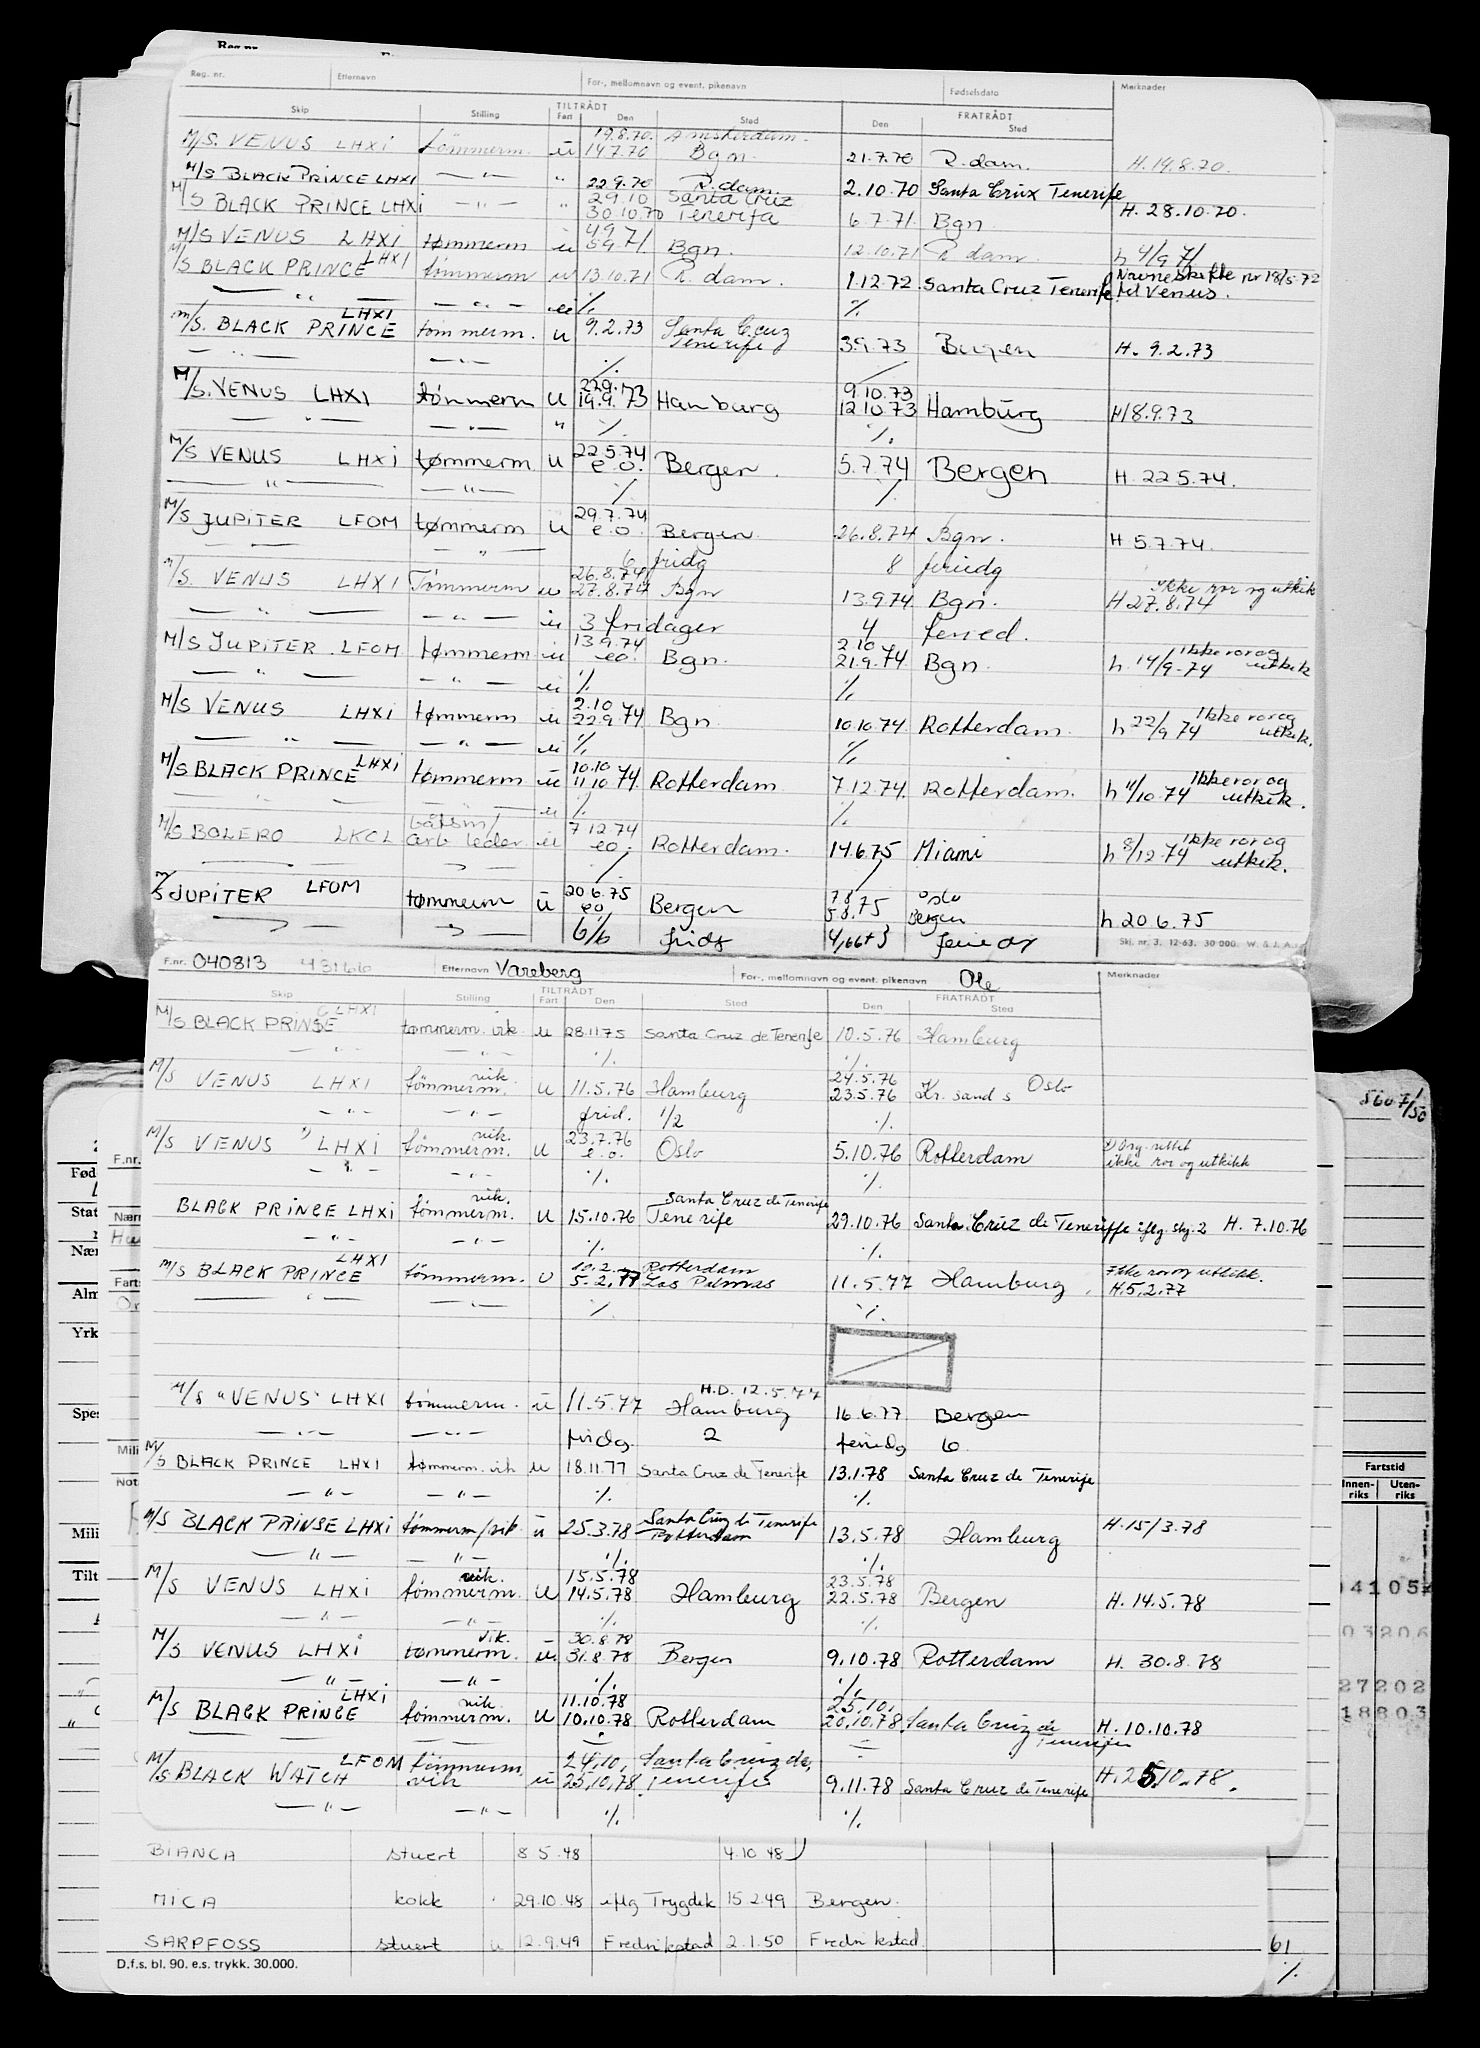 Reg. nr. Etternavn For-, mellomnavn og event. pikenavn Fødselsdato Merknader
TILTRÅDT FRATRÅDT
Skip Stilling Fart Den Sted Den Sted
19.8.70. Amsterdam.
M/S. VENUS LHXI tømmerm. u 14.7.70 Bgn. 21.7.70 R.dam. H. 19.8.70.
M/S BLACK PRINCE LHXI — " — " 22.9.70 R.dam. 2.10.70 Santa Crux Tenerife
29.10 Santa Cruz
M/S BLACK PRINCE LHXI — " — " 30.10.70 Tenerifa 6.7.71. Bgn H. 28.10.70.
4.9.71
M/S VENUS LHXI tømmerm u 5.9.71. Bgn. 12.10.71 R dam. h 4/9 71
M/S BLACK PRINCE LHXI tømmerm u 13.10.71 R. dam. 1.12.72. Santa Cruz Tenerife Navneskifte nr 18/5-72 til Venus.
— " — — " — u ٪ ٪
M/S. BLACK PRINCE LHXI tømmerm. u 9.2.73 Santa Cruz Tenerife 3.9.73 Bergen H. 9.2.73
— " — — " — ٪
22.9.73 9.10.73
M/S. VENUS LHXI tømmerm u 19.9.73 Hamburg 12.10.73 Hamburg H 18.9.73
— " — — " — " ٪ ٪
M/S VENUS LHXI tømmerm u 22.5.74 e.o. Bergen. 5.7.74 Bergen H. 22.5.74.
— " — — " — ٪ ٪
M/S JUPITER LFOM tømmerm u 29.7.74 e.o. Bergen 26.8.74 Bgn. H 5.7.74.
— " — 6 fridg 8 feriedg
26.8.74 Ikke ror og utkik
M/S. VENUS LHXI Tømmerm u 27.8.74 Bgn 13.9.74 Bgn. H 27.8.74
— " — — " — u 3 fridager 4 feried.
13.9.74 2.10 Ikke ror og utkik
M/S JUPITER LFOM tømmerm u eo. Bgn. 21.9.74 Bgn. h 14/9-74
— " — — " — u ٪ ٪
2.10 Ikke ror og utkik.
M/S VENUS LHXI tømmerm u 22.9.74 Bgn 10.10.74 Rotterdam. h 22/9 74
— " — — " — u ٪ ٪
10.10 Ikke ror og utkik.
M/S BLACK PRINCE LHXI tømmerm u 11.10.74 Rotterdam 7.12.74. Rotterdam. h 11/10.74
— " — u ٪ ٪
båtsm/ 7.12.74 Ikke ror og utkik.
M/S BOLERO LKCL arb leder u eo. Rotterdam. 14.6.75 Miami h 8/12.74
20.6.75 7.8 Oslo
M/S JUPITER LFOM tømmerm u eo Bergen 5.8.75 Bergen h 20.6.75
6/6 fridg 4,66+3 feriedg
Skj. nr. 3. 12-63. 30 000. W. &
F.nr. 040813 43166 Etternavn Vareberg For-, mellomnavn og event. pikenavn Ole Merknader
TILTRÅDT FRATRÅDT
Skip Stilling Fart Den Sted Den Sted
M/S BLACK PRINSE LHXI tømmerm. vik. u 28.11.75 Santa Cruz de Tenerife 10.5.76 Hamburg
— " — — " — ٪ ٪
vik. 24.5.76
M/S VENUS LHXI tømmerm. u 11.5.76 Hamburg 23.5.76 Kr. sand s Oslo
— " — — " — frid. 1/2 ٪
vik. 23.7.76 Brg. rettet
M/S VENUS LHXI tømmerm. u e.o. Oslo 5.10.76 Rotterdam ikke ror og utkikk
— " — — " — ٪ ٪
vik. Santa Cruz de Tenerife
BLACK PRINCE LHXI tømmerm. u 15.10.76 Tenerife 29.10.76 Santa Cruz de Teneriffe iflg. skj. 2 H. 7.10.76
— " — — " — ٪ ٪
LHXI 10.2. Rotterdam Ikke ror og utkikk.
M/S BLACK PRINCE tømmerm. u 5.2.77 Las Palmas 11.5.77 Hamburg H.5.2.77
— " — — " — ٪ ٪
H.D. 12.5.77
M/S "VENUS" LHXI tømmerm. u 11.5.77 Hamburg 16.6.77 Bergen
— " — — " — fridg. 2 feriedg 6
M/S BLACK PRINCE LHXI tømmerm. vik u 18.11.77 Santa Cruz de Tenerife 13.1.78 Santa Cruz de Tenerife
— " — — " — ٪ ٪
Santa Cruz de Tenerife
M/S BLACK PRINSE LHXI tømmerm/vik u 25.3.78 Rotterdam 13.5.78 Hamburg H.15/3.78
— " — — " — ٪ ٪
vik. 15.5.78 23.5.78
M/S VENUS LHXI tømmerm. u 14.5.78 Hamburg 22.5.78 Bergen H. 14.5.78
— " — — " — ٪ ٪
vik. 30.8.78
M/S VENUS LHXI tømmerm. u. 31.8.78 Bergen 9.10.78 Rotterdam H. 30.8.78
— " — — " — ٪ ٪
LHXI vik 11.10.78 25.10.
M/S BLACK PRINCE tømmerm. u 10.10.78 Rotterdam 20.10.78. Santa Cruz de Tenerifen H. 10.10.78
LFOM tømmerm. 24.10. Santa Cruz de
M/S BLACK WATCH vik u 25.10.78. Tenerife 9.11.78 Santa Cruz de Tenerife H. 25.10.78.
— " — — " — ٪ ٪
BIANCA stuert 8.5.48 4.10.48
MICA kokk 29.10.48 iflg Trygdek 15.2.49 Bergen.
SARPFOSS stuert u 12.9.49 Fredrikstad 2.1.50 Fredrikstad.
D.f.s. bl. 90. e.s. trykk. 30.000.
61
٪
Fød
Stat
Nær
Alm
Yrk
Spes
Mili
Tilt
F.nr.
Nærm
Farts
Mili
Not
5607/50
Fartstid
Innen-riks Uten-riks
04105
03206
27202
18803